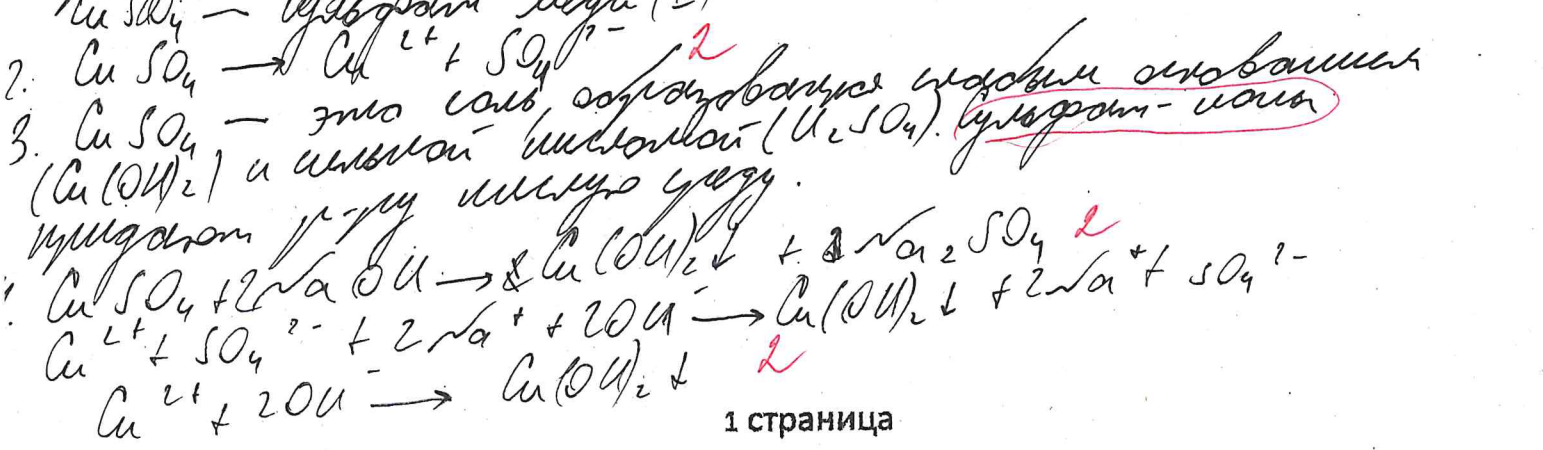 CuSO₄ — сульфат меди (II)
2. CuSO₄ → Cu²⁺ + SO₄²⁻ 2
3. CuSO₄ — это соль, образованная слабым основанием
(Cu(OH)₂) и сильной кислотой (H₂SO₄). Сульфат-ионы
придают р-ру кислую среду.
CuSO₄ + 2NaOH → Cu(OH)₂↓ + Na₂SO₄ 2
Cu²⁺ + SO₄²⁻ + 2Na⁺ + 2OH⁻ → Cu(OH)₂↓ + 2Na⁺ + SO₄²⁻
Cu²⁺ + 2OH⁻ → Cu(OH)₂↓ 2
1 страница